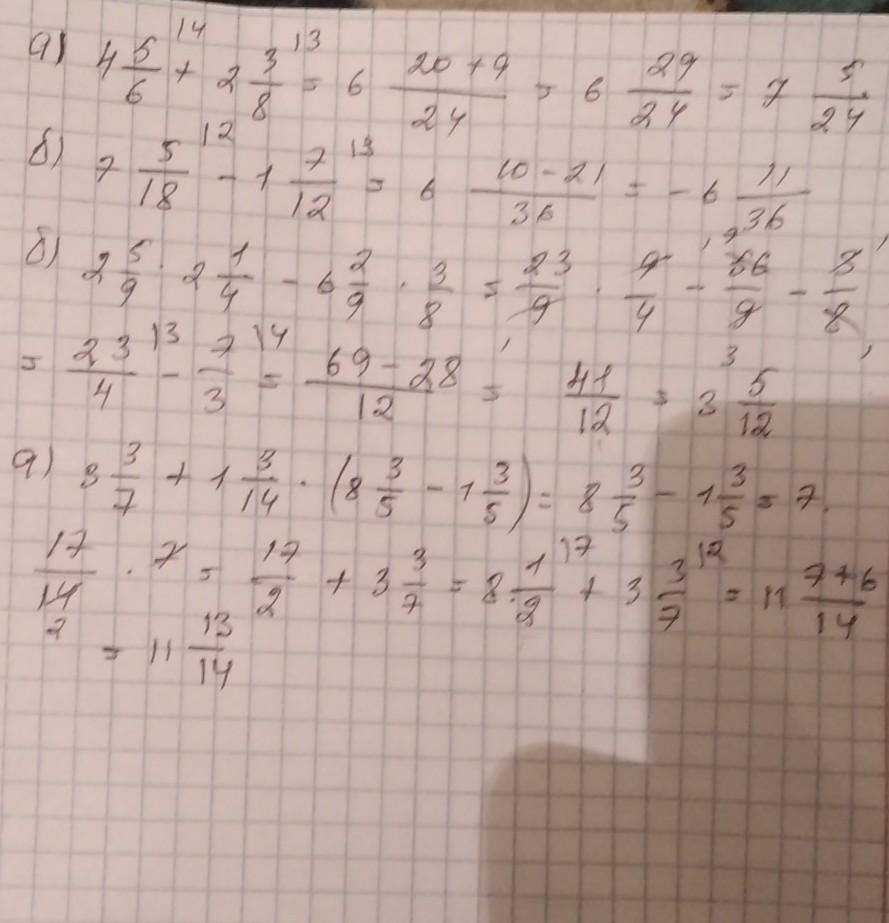 а) 4 5/6 ¹⁴ + 2 3/8 ¹³ = 6 (20 + 9)/24 = 6 29/24 = 7 5/24
б) 7 5/18 ¹² - 1 7/12 ¹³ = 6 (10 - 21)/36 = - 6 11/36
б) 2 5/9 · 2 1/4 - 6 2/9 · 3/8 = 23/9 · 9/4 - 56/9 - 3/8
= 23/4 ¹³ - 7/3 ¹⁴ = (69 - 28)/12 = 41/12 = 3 5/12
д) 3 3/7 + 1 3/14 · (8 3/5 - 1 3/5) = 8 3/5 - 1 3/5 = 7.
17/14 · 7 = 17/2 + 3 3/7 = 8 1/2 ¹⁷ + 3 3/7 ¹² = 11 (7 + 6)/14
= 11 13/14